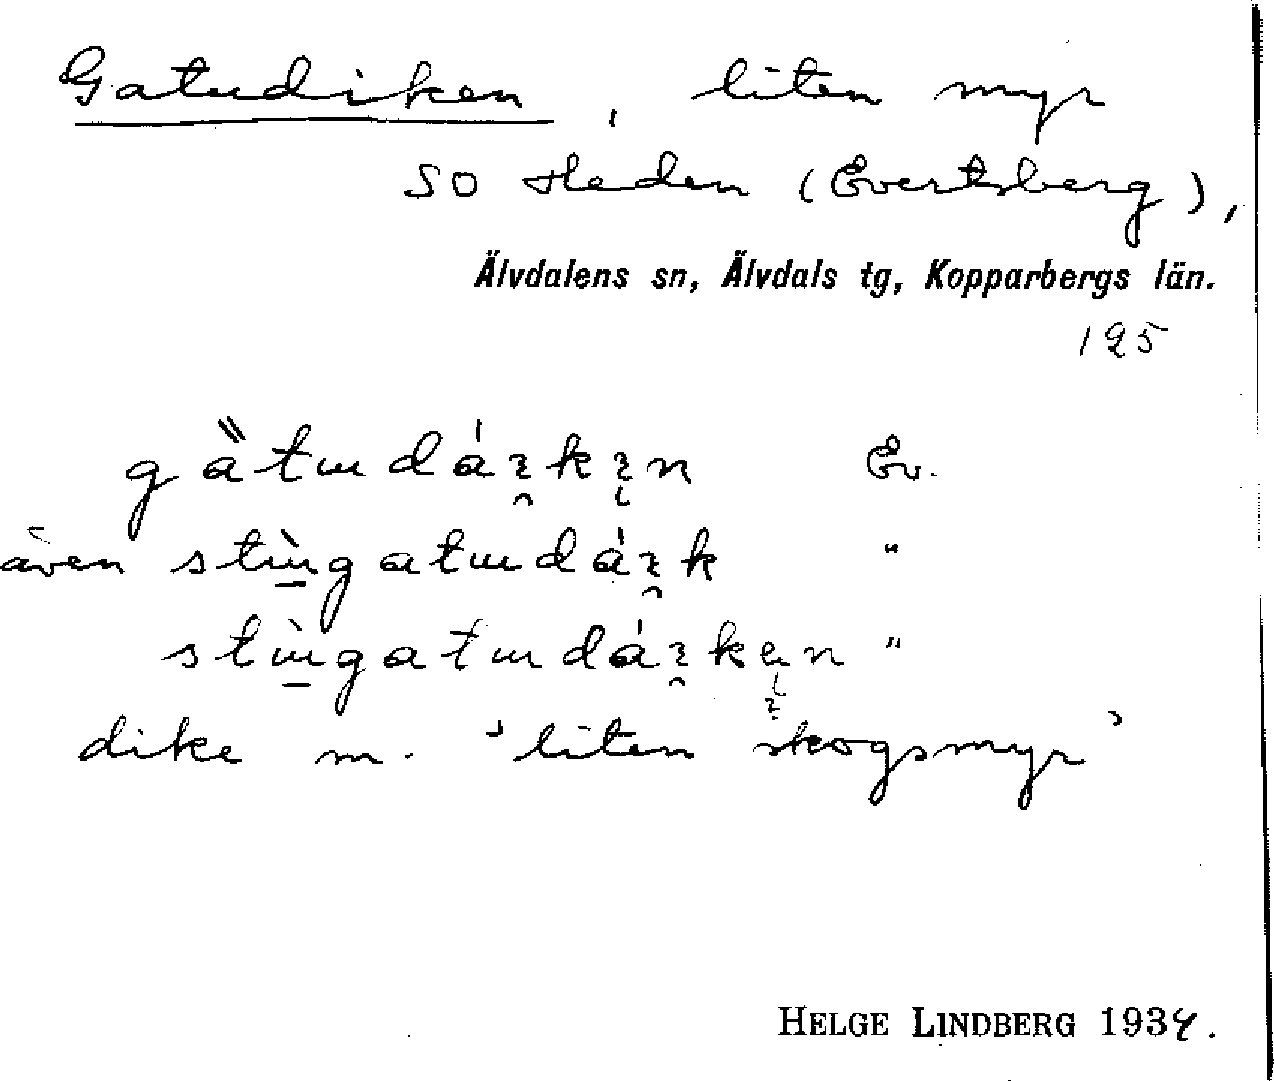 Gatudiken, liten myr
SO Heden (Evertsberg),
Älvdalens sn, Älvdals tg, Kopparbergs län.
125
Ev.
även "
"
dike m. 'liten skogsmyr'
HELGE LINDBERG 1934.